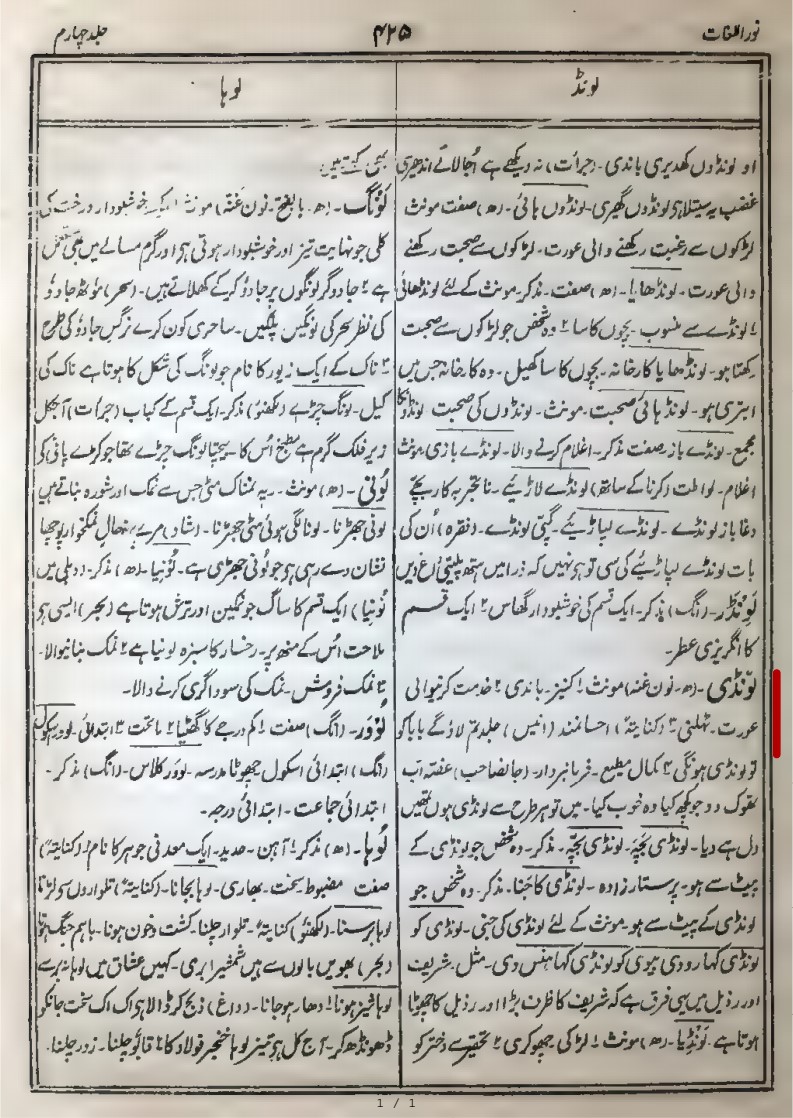 نور اللغات
۴۲۵
جلد چہارم
لونڈ
لوہا
او لونڈوں کھدیری باندی۔ (جرأت) نہ دیکھے ہے اُجالا نے اندھیری
غضب یہ سیتلا ہی لونڈوں گھیری۔ لونڈوں ہائی۔ (ھ) صفت مونث
لڑکوں سے رغبت رکھنے والی عورت۔ لڑکوں سے صحبت رکھنے
والی عورت۔ لونڈھایا۔ (ھ) صفت۔ مذکر۔ مونث کے لئے لونڈھائی
۱ لونڈے سے منسوب۔ بچوں کا سا ۲ وہ شخص جو لڑکوں سے صحبت
رکھتا ہو۔ لونڈھایا کارخانہ۔ بچوں کا سا کھیل۔ وہ کارخانہ جس میں
ابتری ہو۔ لونڈہائی صحبت۔ مونث۔ لونڈوں کی صحبت لونڈوں کا
مجمع۔ لونڈے باز۔ صفت مذکر۔ اغلام کرنے والا۔ لونڈے بازی۔ مونث
اغلام۔ لواطت (کرنا کے ساتھ) لونڈے لاڑیئے۔ ناتجربہ کار بچّے
دغا باز لونڈے۔ لونڈے لپاڑیئے۔ گپّی لونڈے۔ (فقرہ) اُن کی
بات لونڈے لپاڑیئے کی سی تو ہی نہیں کہ ذرا میں ستھ پلیتی داغ دیں
لَوِنڈر۔ (انگ) مذکر۔ ایک قسم کی خوشبودار گھاس ۲ ایک قسم
کا انگریزی عطر۔
لونڈی۔ (ھ۔ نون غنہ) مونث ۱ کنیز۔ باندی ۲ خدمت کرنیوالی
عورت۔ ٹہلنی ۳ (کنایتہً) احسانمند (انیس) جلد تم لاؤ گے بابا کو
تو لونڈی ہونگی ۴ کمال مطیع۔ فرمانبردار۔ (جانصاحب) غصّہ اب
تھوک دو جو کچھ کیا وہ خوب کیا۔ میں تو ہر طرح سے لونڈی ہوں تمھیں
دل ہے دیا۔ لونڈی بچہ۔ لونڈی بچّہ۔ مذکر۔ وہ شخص جو لونڈی کے
پیٹ سے ہو۔ پرستار زادہ۔ لونڈی کا جنا۔ مذکر۔ وہ شخص جو
لونڈی کے پیٹ سے ہو۔ مونث کے لئے لونڈی کی جنی۔ لونڈی کو
لونڈی کہا رو دی بیوی کو لونڈی کہا ہنس دی۔ مثل۔ شریف
اور رذیل میں یہی فرق ہے کہ شریف کا ظرف بڑا اور رذیل کا چھوٹا
ہوتا ہے۔ لَونڈیا۔ (ھ) مونث ۱ لڑکی چھوکری ۲ تحقیر سے دختر کو
بھی کہتے ہیں۔
لَونگ۔ (ھ۔ بالفتح۔ نون غنہ) مونث ایک خوشبودار درخت کی
کلی جو نہایت تیز اور خوشبودار ہوتی ہی اور گرم مسالے میں بھی
ہے ۲ جادوگر لونگوں پر جادو کرکے کھلاتے ہیں۔ (سحر) موٹھ جادو
کی نظر سحر کی لونگیں پلکیں۔ ساحری کون کرے نرگس جادو کی طرح
۳ ناک کے ایک زیور کا نام جو لونگ کی شکل کا ہوتا ہے ناک کی
کیل۔ لونگ چڑے (لکھنؤ) مذکر۔ ایک قسم کے کباب (جرأت) آجکل
زیر فلک گرم ہے مطبخ اُس کا۔ بیچتا لونگ چڑے تھا جو کڑے پانی کی
لُونی۔ (ھ) مونث۔ یہ نمناک مٹی جس سے نمک اور شورہ بناتے ہیں
لونی جھڑنا۔ لونا لگی ہوئی مٹی جھڑنا۔ (شاد) مرے
نشان دے رہی ہو جو لُونی جھڑی ہے۔ لُونیا۔ (ھ) مذکر۔ (دہلی میں
نُونیا) ایک قسم کا ساگ جو نمکین اور ترش ہوتا ہے (بحر) ایسی ہی
ملاحت اُس کے منھ پر۔ رخسار کا سبزہ لونیا ہے ۲ نمک بنانیوالا۔
۳ نمک فروش۔ نمک کی سوداگری کرنے والا۔
لووَر۔ (انگ) صفت ۱ کم درجے کا گھٹیا ۲ ماتحت ۳ ابتدائی۔ لوور اسکول
(انگ) ابتدائی اسکول چھوٹا مدرسہ۔ لووَر کلاس۔ (انگ) مذکر۔
ابتدائی جماعت۔ ابتدائی درجہ۔
لوہا۔ (ھ) مذکر ۱ آہن۔ حدید۔ ایک معدنی جوہر کا نام ۲ (کنایتہً)
صفت مضبوط سخت۔ بھاری۔ لوہا بجانا۔ (کنایتہً) تلواروں سے لڑنا
لوہا برسنا۔ (لکھنؤ) کنایتہً۔ تلوار چلنا۔ کشت و خون ہونا۔ باہم جنگ ہونا
(بحر) بھویں بالوں سے ہیں شمشیر ابری۔ کہیں عشاق میں لوہا نہ برسے
لوہا تیز ہونا ۱ دھار ہو جانا۔ (داغ) ذبح کر ڈالا ہی اک اک سخت جاں کو
ڈھونڈھ کر۔ آج کل ہی تیز لوہا خنجر فولاد کا ۲ قابو چلنا۔ زور چلنا۔
1 / 1